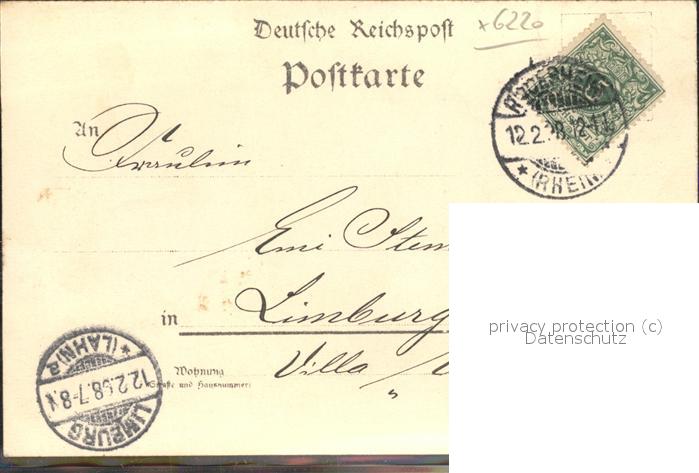 x6220
Deutsche Reichspost
Postkarte
An
Fräulein
Emi Stem
in Limburg
Wohnung
(Straße und Hausnummer)
Villa
12.2.98. 12-1
* (RHEIN)
LIMBURG
12.2.98.7-8
* (LAHN) a
privacy protection (c)
Datenschutz